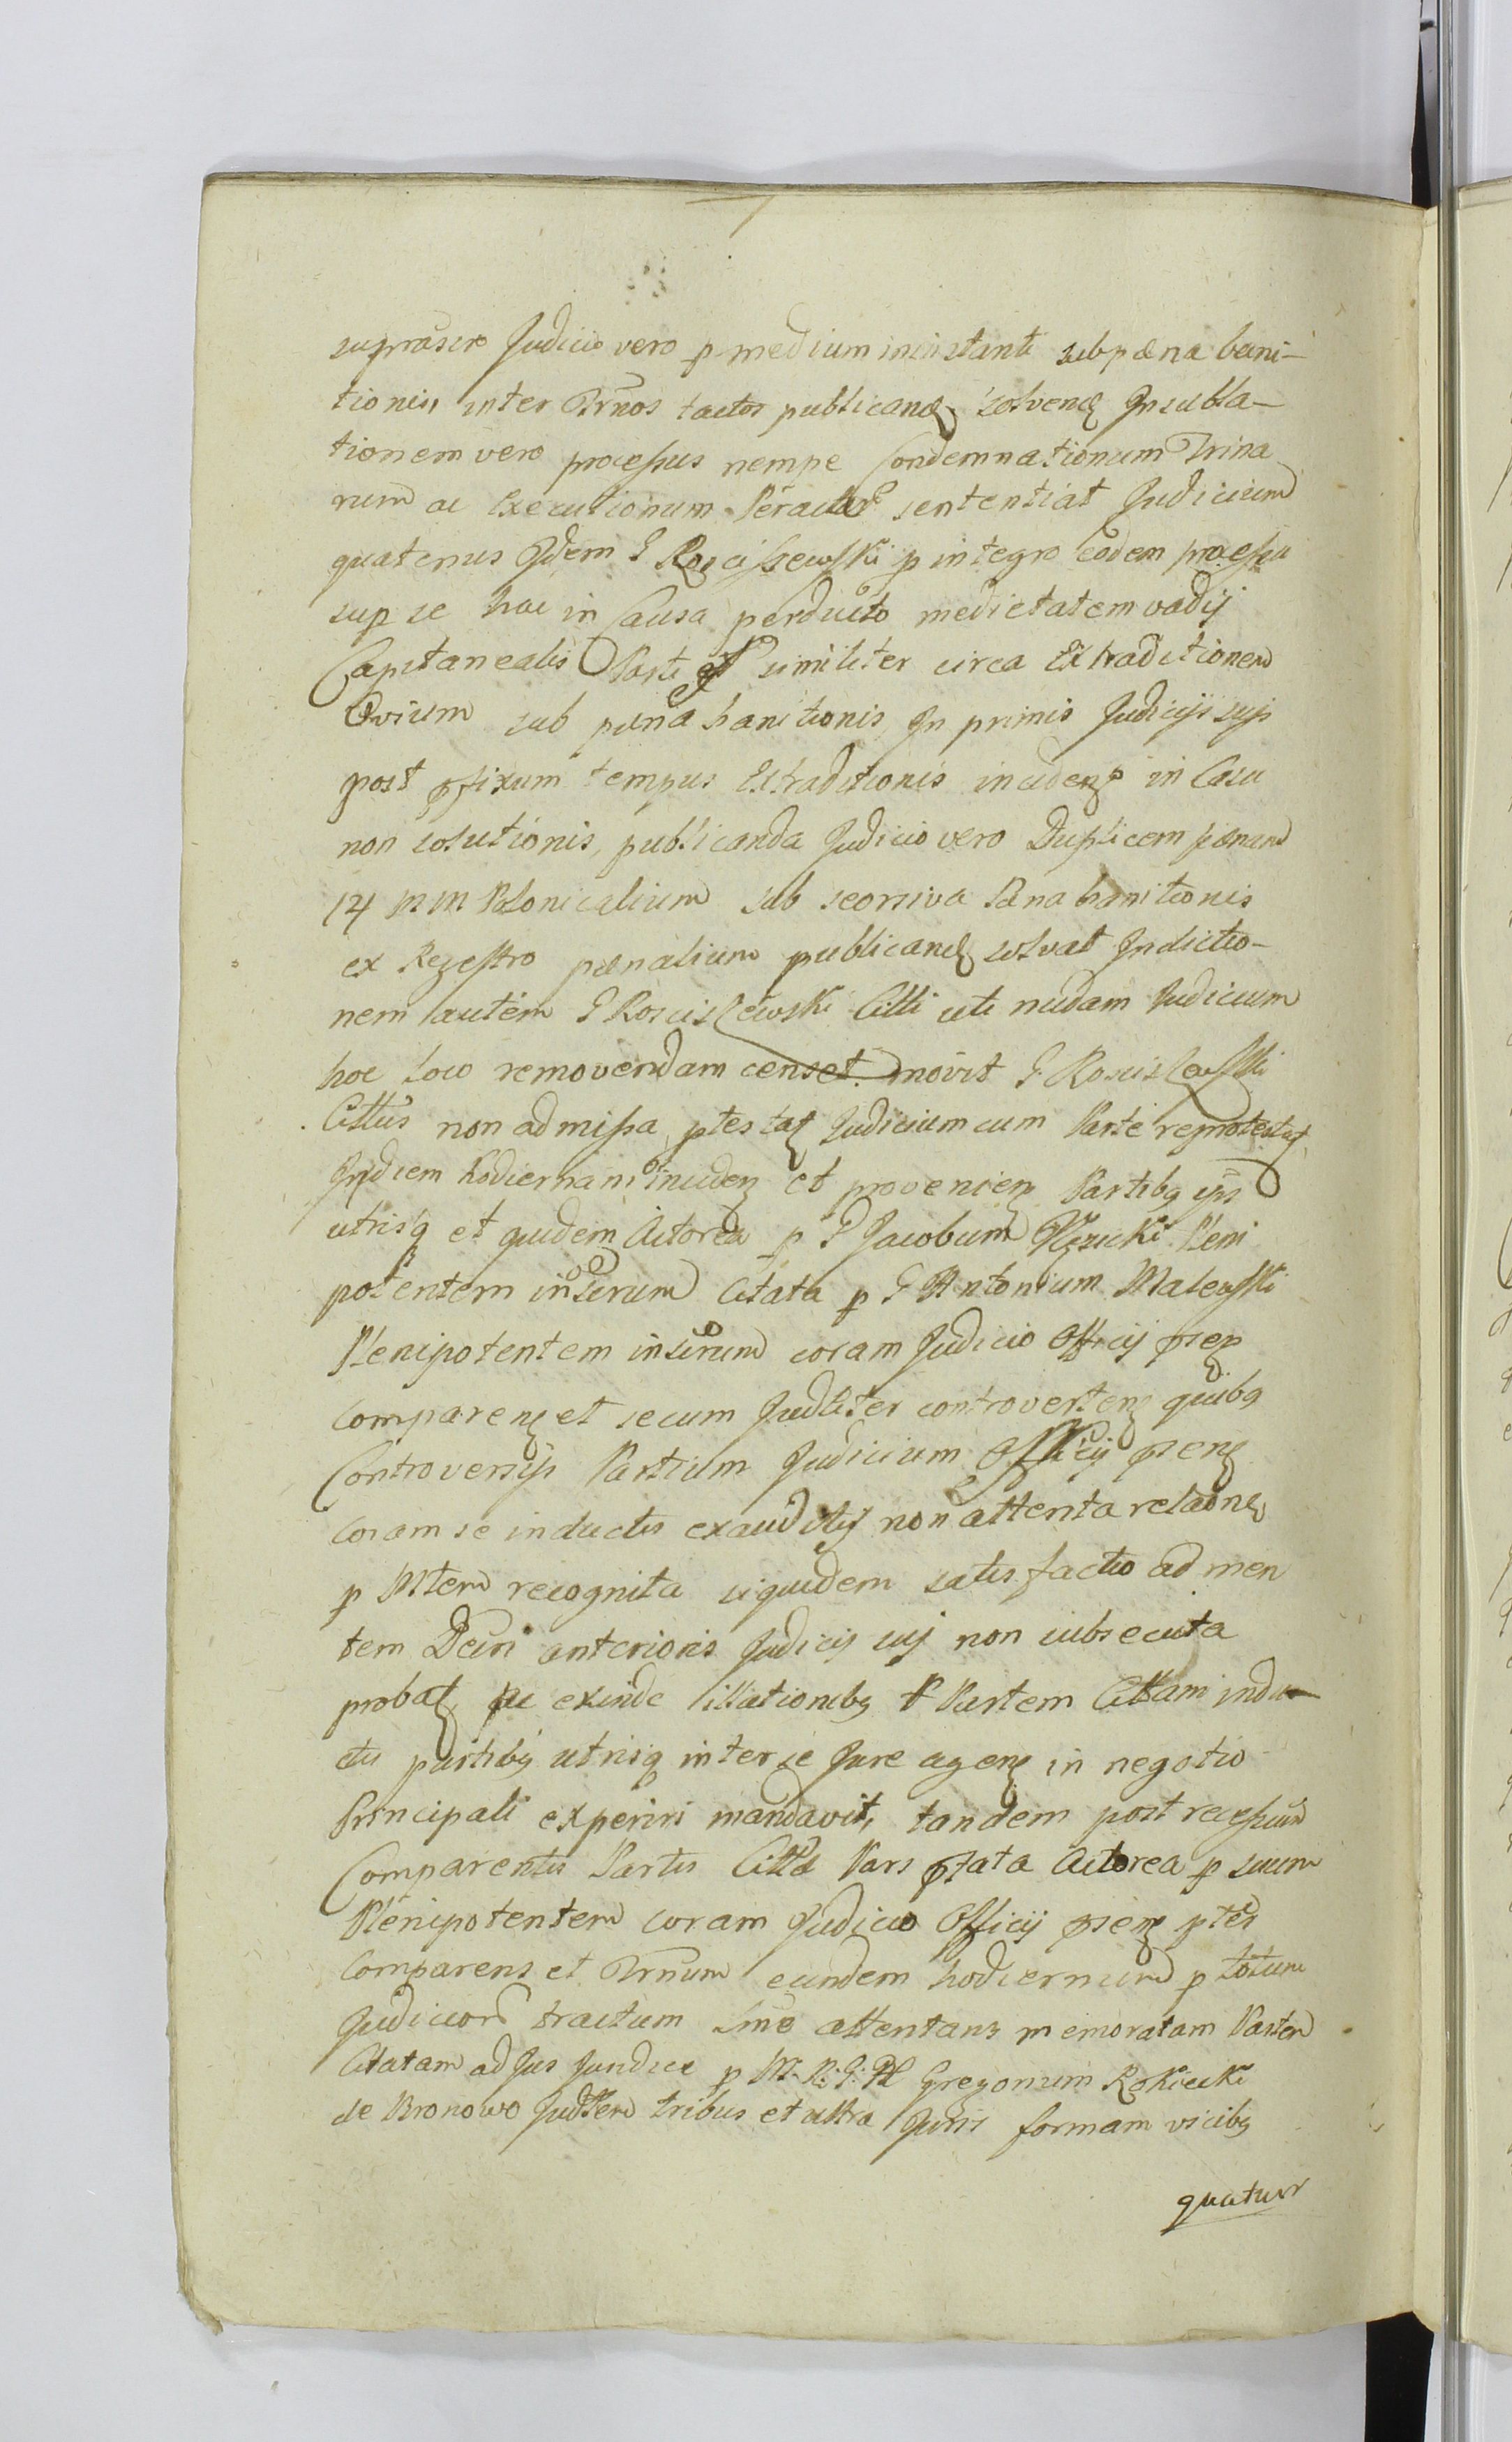 suprascr Judicio vero p medium ininstanti sub pæna bani-
tionis, inter Trnos tactos publicand solvend Jn subla-
tionem vero processus nempe Condemnationum Trina
rum ac Executionum Peractar sententiat Judicium
quatenus Jdem G Rosciszewski p integro eodem processu
sup se hac in Causa perducto medietatem vadij
Capitanealis Parti similiter circa Extraditionem
Ovium sub pæna banitionis Jn primis Judicijs sujs
post pfixum tempus Extraditionis inciden in Casu
non solutionis, publicanda Judicio vero Duplicem pænam
14 M M Polonicalium sub seorsiva Pæna banitionis
ex Regestro pænalium publicand solvat Jndictio-
nem autem G Rosciszewski Citti uti nudam Judicium
hoc loco removendam censet. movit G. Rosciszewski
Cittus non admissa, ptestat Judicium cum Parte reprotestat,
Jn diem hodiernam inciden et provenien Partibq ijs
utrisq et quidem Actorea p G Jacobum Pleni
potentem insurum Citata p G Antonium Malewski
Plenipotentem insurum coram Judicio Officij psen
comparen et secum Judliter controverten quibq
Controversijs Partium Judicium Officij psens
coram se inductis exauditis non attenta relaone
p Mtem recognita siquidem satisfactio ad men
tem Decri anterioris Judicij sui non subsecuta
probat, ac exinde illationibq p Partem Cittam indu-
ctis partibq utrisq inter se Jure agen in negotio
Principali experiri mandavit, tandem post recessum
Comparentis Partis Cittæ Pars pstata Actorea p suum
Plenipotentem coram Judicio Officij psen ptér
Comparens et Trnum eundem hodiernum p totum
Judicior tractum attentans memoratam Partem
Citatam ad Jus Juridice p M. R. G. Pl Gregorium Rokicki
de Bronowo Judlem tribus et ultra Juris formam vicibq
quatuor